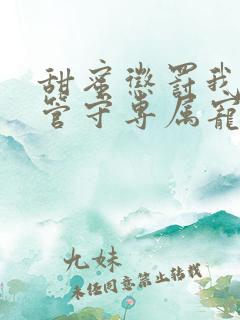 甜蜜懲罰我
管守專属寵
九妹
未经同意禁止转载